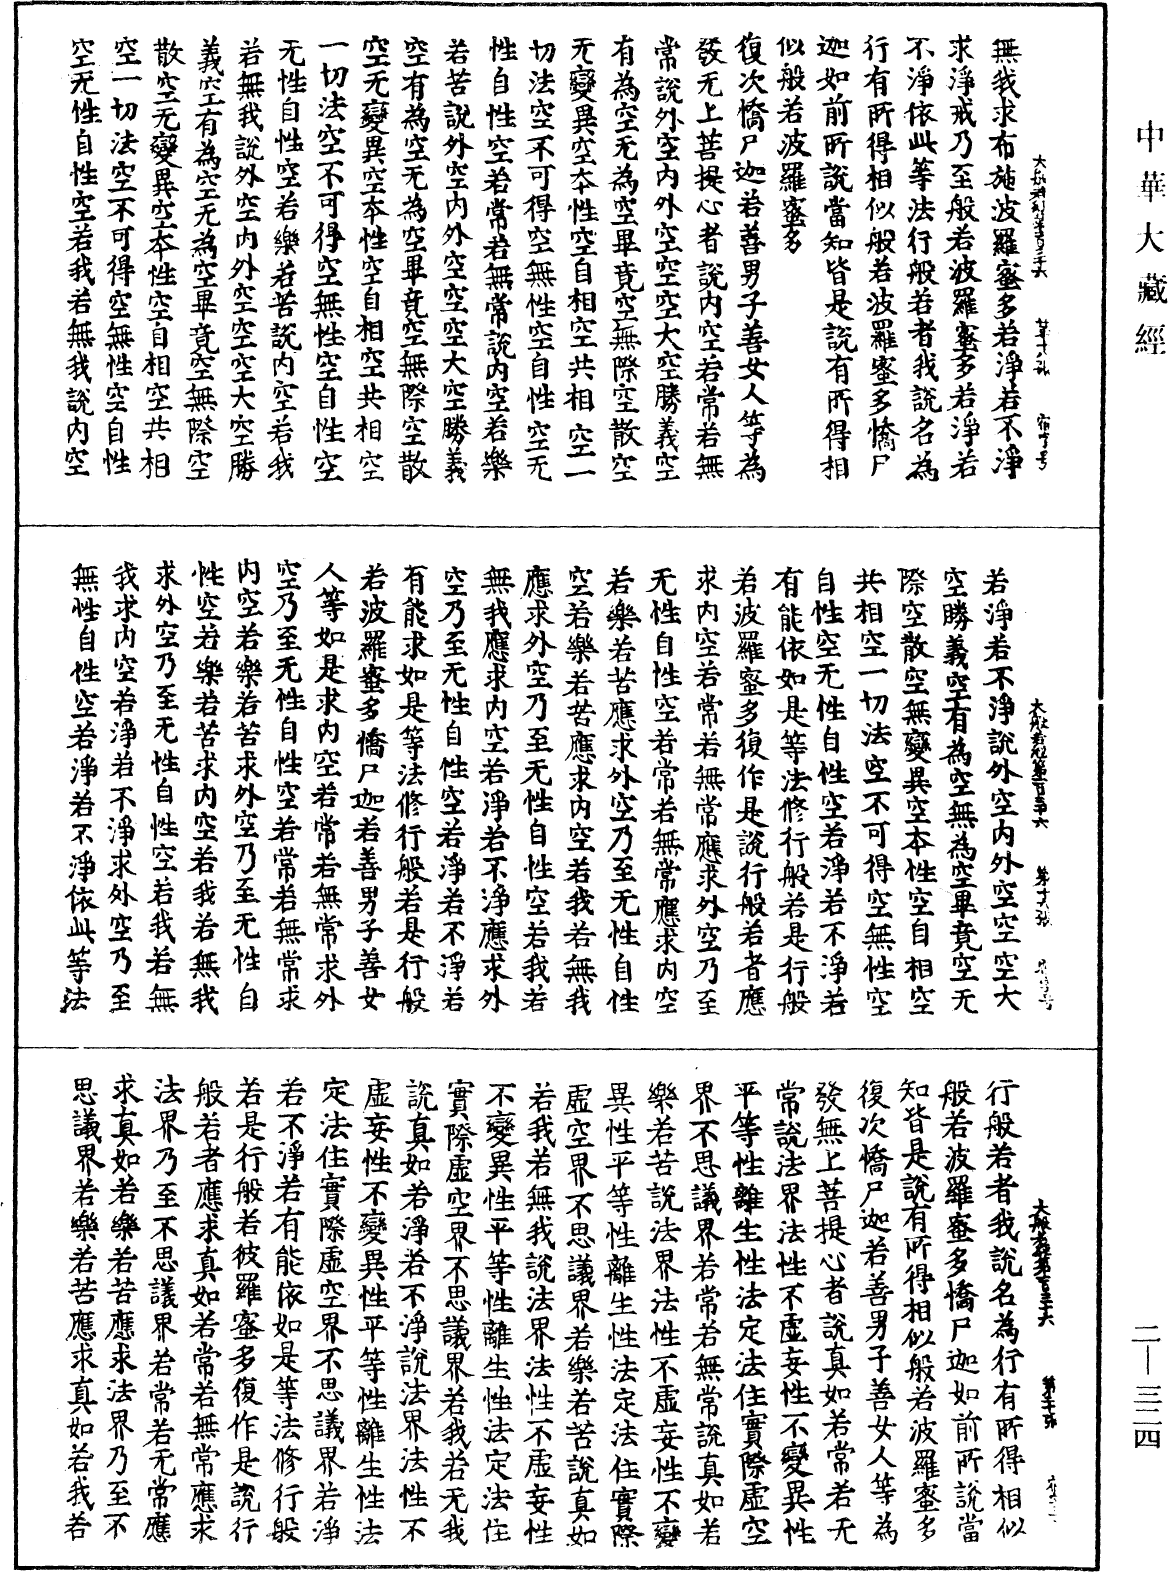 中華大藏經
無我求布施波羅蜜多若淨若不淨
求淨戒乃至般若波羅蜜多若淨若
不淨依此等法行般若者我說名為
行有所得相似般若波羅蜜多憍尸
迦如前所說當知皆是說有所得相
似般若波羅蜜多
復次憍尸迦若善男子善女人等為
發无上菩提心者說内空若常若無
常說外空内外空空空大空勝義空
有為空无為空畢竟空無際空散空
无變異空本性空自相空共相空一
切法空不可得空無性空自性空无
性自性空若常若無常說内空若樂
若苦說外空内外空空空大空勝義
空有為空无為空畢竟空無際空散
空无變異空本性空自相空共相空
一切法空不可得空無性空自性空
无性自性空若樂若苦說内空若我
若無我說外空内外空空空大空勝
義空有為空无為空畢竟空無際空
散空无變異空本性空自相空共相
空一切法空不可得空無性空自性
空无性自性空若我若無我說内空
若淨若不淨說外空内外空空空大
空勝義空有為空無為空畢竟空无
際空散空無變異空本性空自相空
共相空一切法空不可得空無性空
自性空无性自性空若淨若不淨若
有能依如是等法修行般若是行般
若波羅蜜多復作是說行般若者應
求内空若常若無常應求外空乃至
无性自性空若常若無常應求内空
若樂若苦應求外空乃至无性自性
空若樂若苦應求内空若我若無我
應求外空乃至无性自性空若我若
無我應求内空若淨若不淨應求外
空乃至无性自性空若淨若不淨若
有能求如是等法修行般若是行般
若波羅蜜多憍尸迦若善男子善女
人等如是求内空若常若無常求外
空乃至无性自性空若常若無常求
内空若樂若苦求外空乃至无性自
性空若樂若苦求内空若我若無我
求外空乃至无性自性空若我若無
我求内空若淨若不淨求外空乃至
無性自性空若淨若不淨依此等法
行般若者我說名為行有所得相似
般若波羅蜜多憍尸迦如前所說當
知皆是說有所得相似般若波羅蜜多
復次憍尸迦若善男子善女人等為
發無上菩提心者說真如若常若无
常說法界法性不虛妄性不變異性
平等性離生性法定法住實際虛空
界不思議界若常若無常說真如若
樂若苦說法界法性不虛妄性不變
異性平等性離生性法定法住實際
虛空界不思議界若樂若苦說真如
若我若無我說法界法性不虛妄性
不變異性平等性離生性法定法住
實際虛空界不思議界若我若无我
說真如若淨若不淨說法界法性不
虛妄性不變異性平等性離生性法
定法住實際虛空界不思議界若淨
若不淨若有能依如是等法修行般
若是行般若波羅蜜多復作是說行
般若者應求真如若常若無常應求
法界乃至不思議界若常若无常應
求真如若樂若苦應求法界乃至不
思議界若樂若苦應求真如若我若
二—三二四